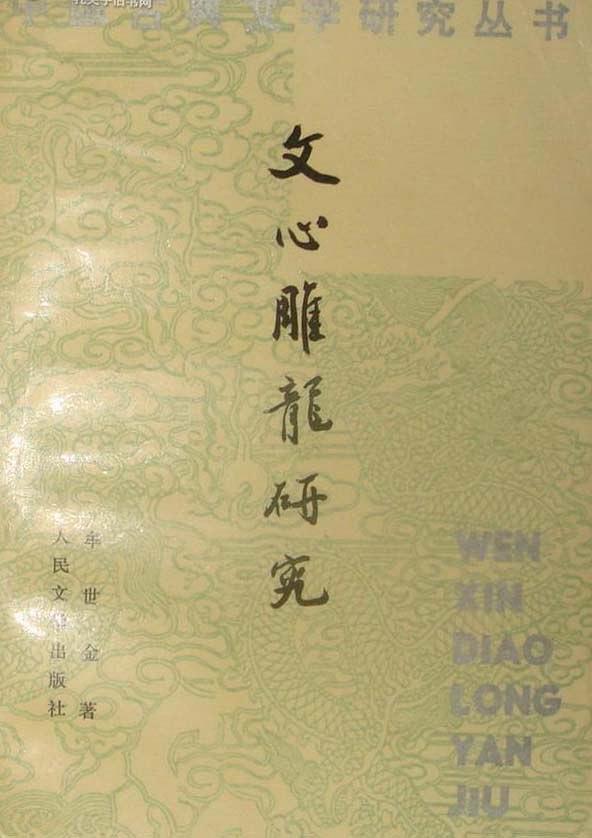 中国古典文学研究丛书
文心雕龍研究
牟世金著
人民文学出版社
WEN
XIN
DIAO
LONG
YAN
JIU